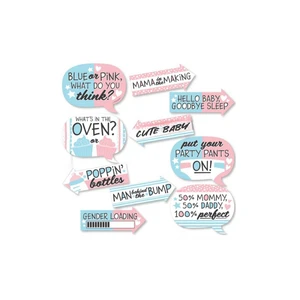 BLUE or PINK,
WHAT DO YOU
think?
MAMA in the MAKING
HELLO BABY,
GOODBYE SLEEP
WHAT'S IN THE
OVEN? or
CUTE BABY
put your
PARTY PANTS
ON!
POPPIN'
bottles
MAN behind the BUMP
50% MOMMY,
50% DADDY,
100% perfect
GENDER LOADING